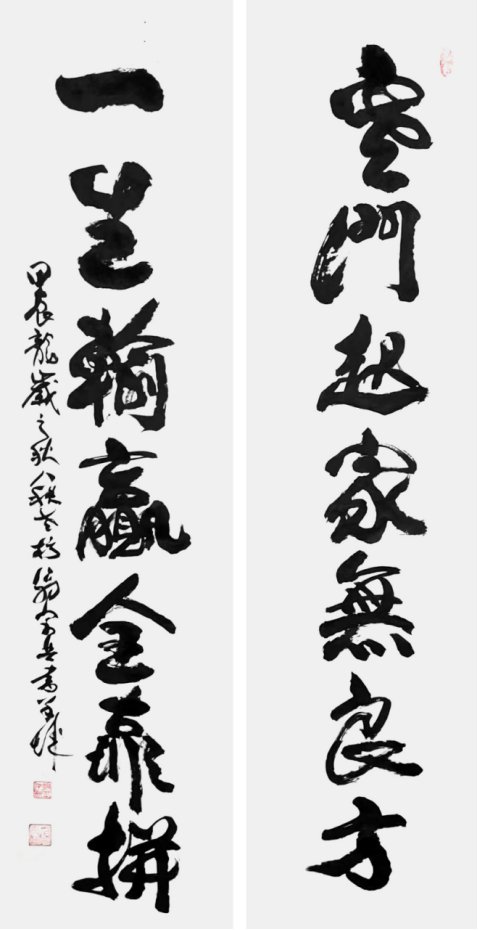 寒門起家無良方
一生輸贏全靠拼
甲辰龍歲之秋八秩老翁書